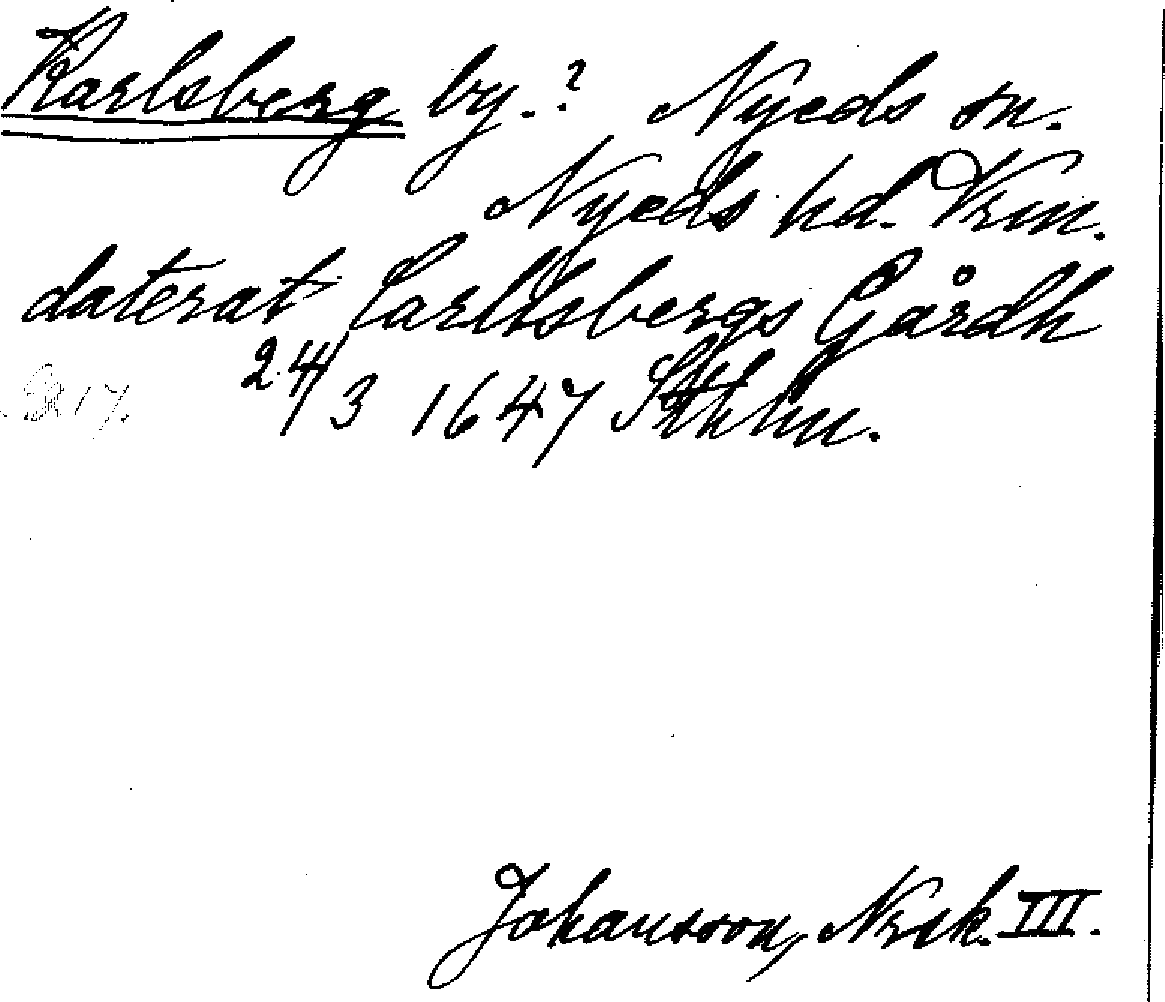 Karlsberg by.? Nyeds sn.
Nyeds hd. Vrm.
daterat Carlsbergs Gårdh
24/3 1647 Sthlm.
Johansson, Nrsk. III.